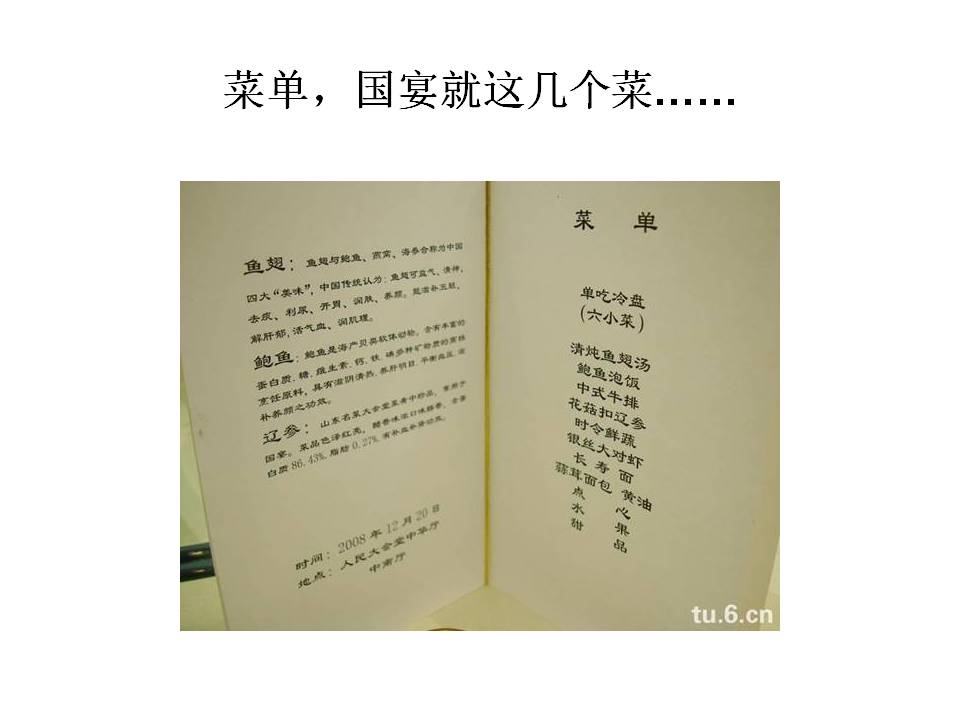 菜单，国宴就这几个菜……
鱼翅：鱼翅与鲍鱼、燕窝、海参合称为中国
四大“美味”，中国传统认为：鱼翅可益气、清神，
去痰、利尿、开胃、润肤、养颜。能滋补五脏，
解肝郁，活气血、润肌理。
鲍鱼：鲍鱼是海产贝类软体动物。含有丰富的
蛋白质.糖.维生素.钙.铁.碘多种矿物质的高档
烹饪原料，具有滋阴清热.养肝明目.平衡血压.滋
补养颜之功效。
辽参：山东名菜大会堂菜肴中珍品，常用于
国宴。菜品色泽红亮，醇香味浓口味醇香，含蛋
白质86.43%.脂肪0.27%.有补益补肾功效。
时间：2008年12月20日
地点：人民大会堂中华厅
中南厅
菜 单
单吃冷盘
(六小菜)
清炖鱼翅汤
鲍鱼泡饭
中式牛排
花菇扣辽参
时令鲜蔬
银丝大对虾
长寿面
蒜茸面包 黄油
点 心
水 果
甜 品
tu.6.cn